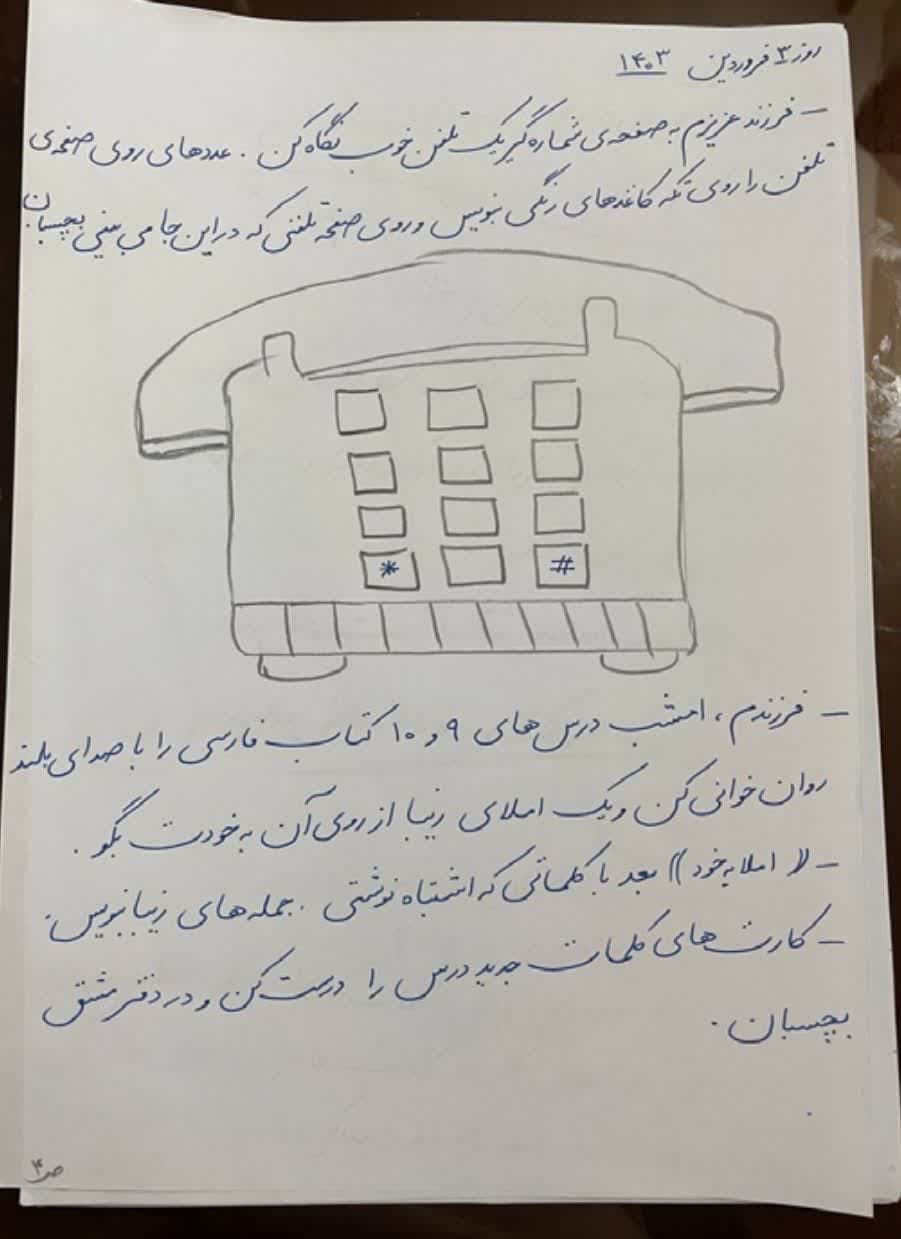 روز ۳ فروردین ۱۴۰۳
- فرزند عزیزم به صفحه‌ی شماره‌گیر یک تلفن خوب نگاه کن . عددهای روی صفحه‌ی
تلفن را روی تکه کاغذهای رنگی بنویس و روی صفحه تلفنی که در این جا می بینی بچسبان
* #
- فرزندم ، امشب درس های ۹ و ۱۰ کتاب فارسی را با صدای بلند
روان خوانی کن و یک املای زیبا از روی آن به خودت بگو .
- (( املا به خود )) بعد با کلماتی که اشتباه نوشتی . جمله های زیبا بنویس .
- کارت های کلمات جدید درس را درست کن و در دفتر مشق
بچسبان .
ص۴